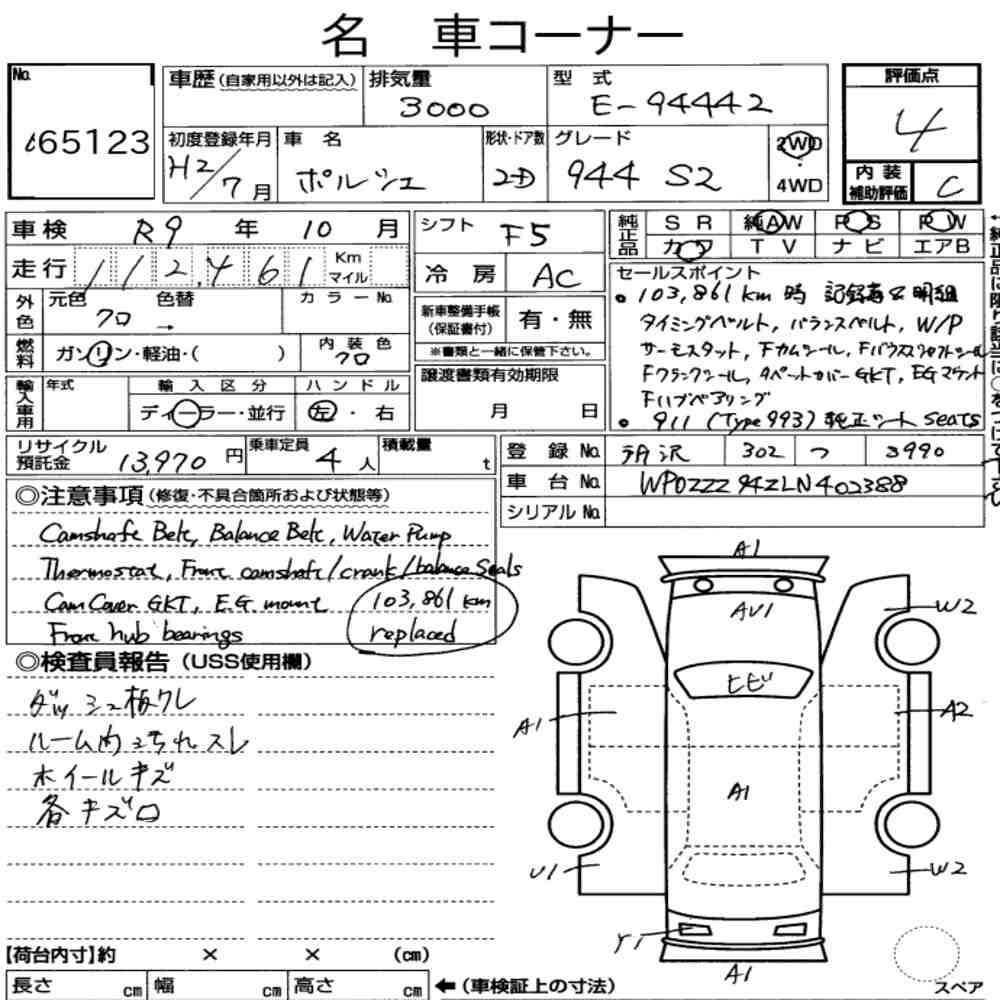 名 車コーナー
No. 65123
車歴 (自家用以外は記入) 排気量 3000 型式 E-94442
評価点 4
初度登録年月 H2/7月 車名 ポルシェ 形状・ドア数 2D グレード 944 S2 2WD 4WD
内装補助評価 C
車検 R9 年 10 月 シフト F5
純正品 SR 純AW PS PW
カワ TV ナビ エアB
走行 112,461 Km マイル 冷房 AC
セールスポイント
外色 元色 クロ 色替 → カラーNo.
新車整備手帳(保証書付) 有・無
※書類と一緒に保管下さい。
燃料 ガソリン・軽油・( ) 内装色 クロ
・103,861km時 記録簿&明細
タイミングベルト, バランスベルト, W/P
サーモスタット, Fカムシール, Fバランスシャフトシール
Fクランクシール, タペットカバーGKT, EGマウント
Fハブベアリング
・911 (Type 993) 純正シート seats
輸入車用 年式 輸入区分 ディーラー・並行 ハンドル 左・右
譲渡書類有効期限 月 日
リサイクル預託金 13,970円 乗車定員 4人 積載量 t
登録No. 302 つ 3990
車台No. WP0ZZZ94ZLN402388
シリアルNo.
◎注意事項 (修復・不具合箇所および状態等)
Camshaft Belt, Balance Belt, Water Pump
Thermostat, Front camshaft/crank/balance Seals
Cam Cover GKT, E.G. mount 103,861 km
Front hub bearings replaced
◎検査員報告 (USS使用欄)
ダッシュ板ワレ
ルーム内ヨゴレスレ
ホイールキズ
各キズ口
A1
AU1
W2
ヒビ
A1
A2
A1
U1
W2
Y1
A1
スペア
【荷台内寸】約 × × (cm)
長さ cm 幅 cm 高さ cm ←(車検証上の寸法)